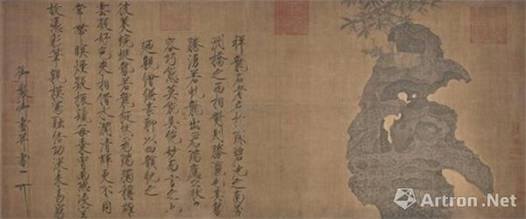 祥龍石者立於環碧池之南芳
洲橋之西相對則勝瀛也其勢
騰湧若虬龍出為瑞應之狀奇
容巧態莫能具絕妙而言之也
廼親繪縑素聊以四韻紀之
彼美蜿蜒勢若龍挺然為瑞獨稱雄
雲凝好色來相借水潤清輝更不同
常帶暝煙疑振鬣每乘宵雨恐凌空
故憑彩筆親模寫融結功深未易窮
御製御畫並書
Artron.Net
雅昌艺术网